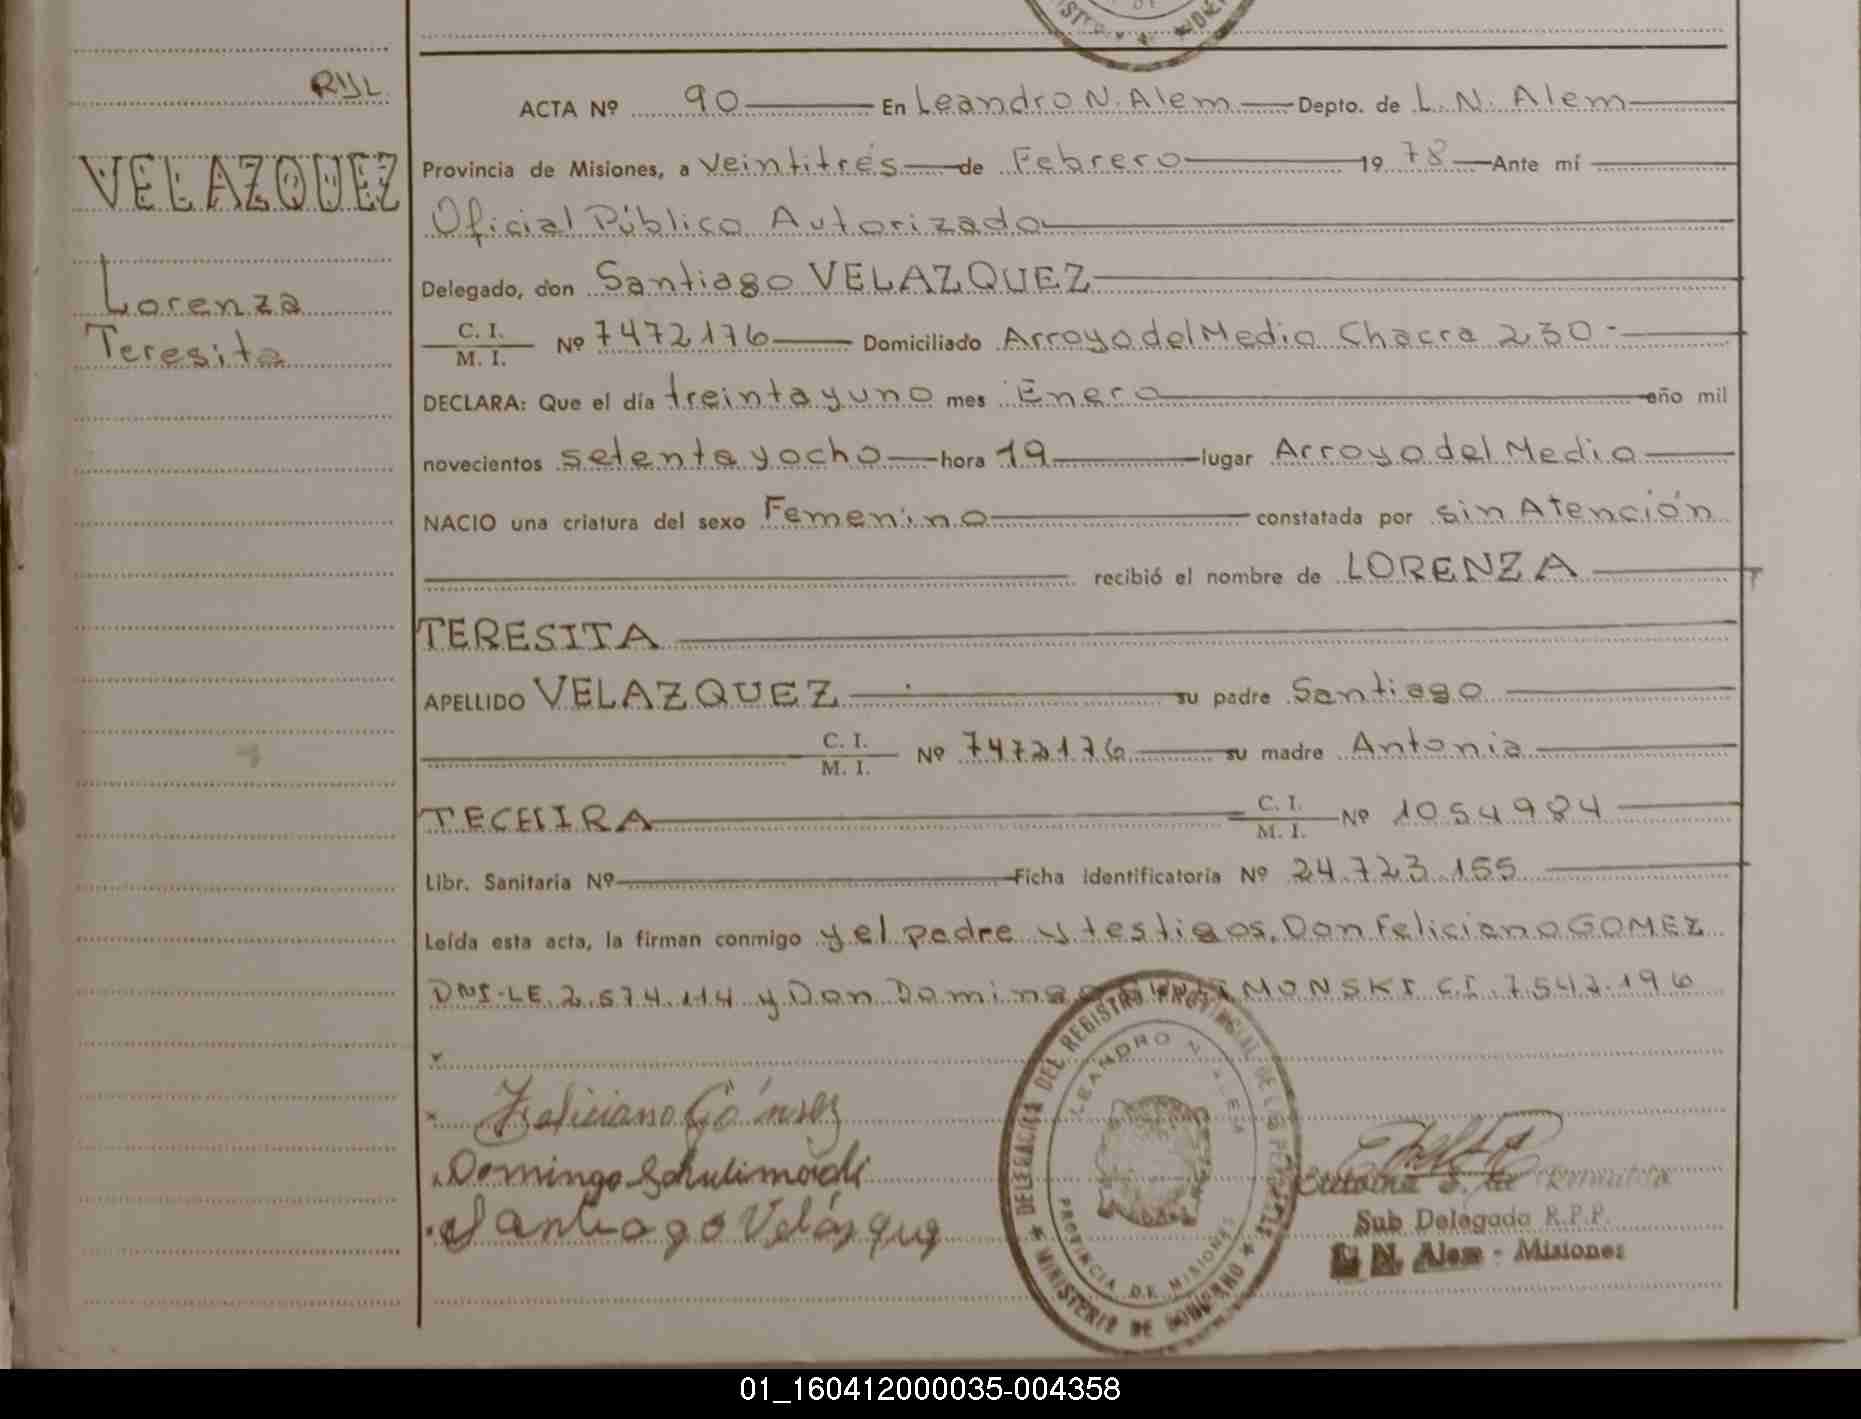 RIJL
VELAZQUEZ
Lorenza
Teresita
ACTA Nº 90 En Leandro N. Alem Depto. de L. N. Alem
Provincia de Misiones, a veintitrés de Febrero 19 78 Ante mí
Oficial Público Autorizado
Delegado, don Santiago VELAZQUEZ
C. I.
M. I. Nº 7472176 Domiciliado Arroyo del Medio Chacra 230
DECLARA: Que el día treinta y uno mes Enero año mil
novecientos setenta y ocho hora 19 lugar Arroyo del Medio
NACIO una criatura del sexo Femenino constatada por sin Atención
recibió el nombre de LORENZA
TERESITA
APELLIDO VELAZQUEZ su padre Santiago
C. I.
M. I. Nº 7472176 su madre Antonia
TECHIRA C. I.
M. I. Nº 1054984
Libr. Sanitaria Nº Ficha identificatoria Nº 24.723.155
Leída esta acta, la firman conmigo y el padre y testigos, Don Feliciano GOMEZ
DNI-LE 2.574.114 y Don Domingo C.I. 7.542.196
Feliciano Gómez
Domingo
Santiago Velásquez
DELEGACIÓN DEL REGISTRO PROVINCIAL DE LAS PERSONAS
LEANDRO N. ALEM
PROVINCIA DE MISIONES
MINISTERIO DE GOBIERNO
Sub Delegado R.P.P.
L. N. Alem - Misiones
01_160412000035-004358